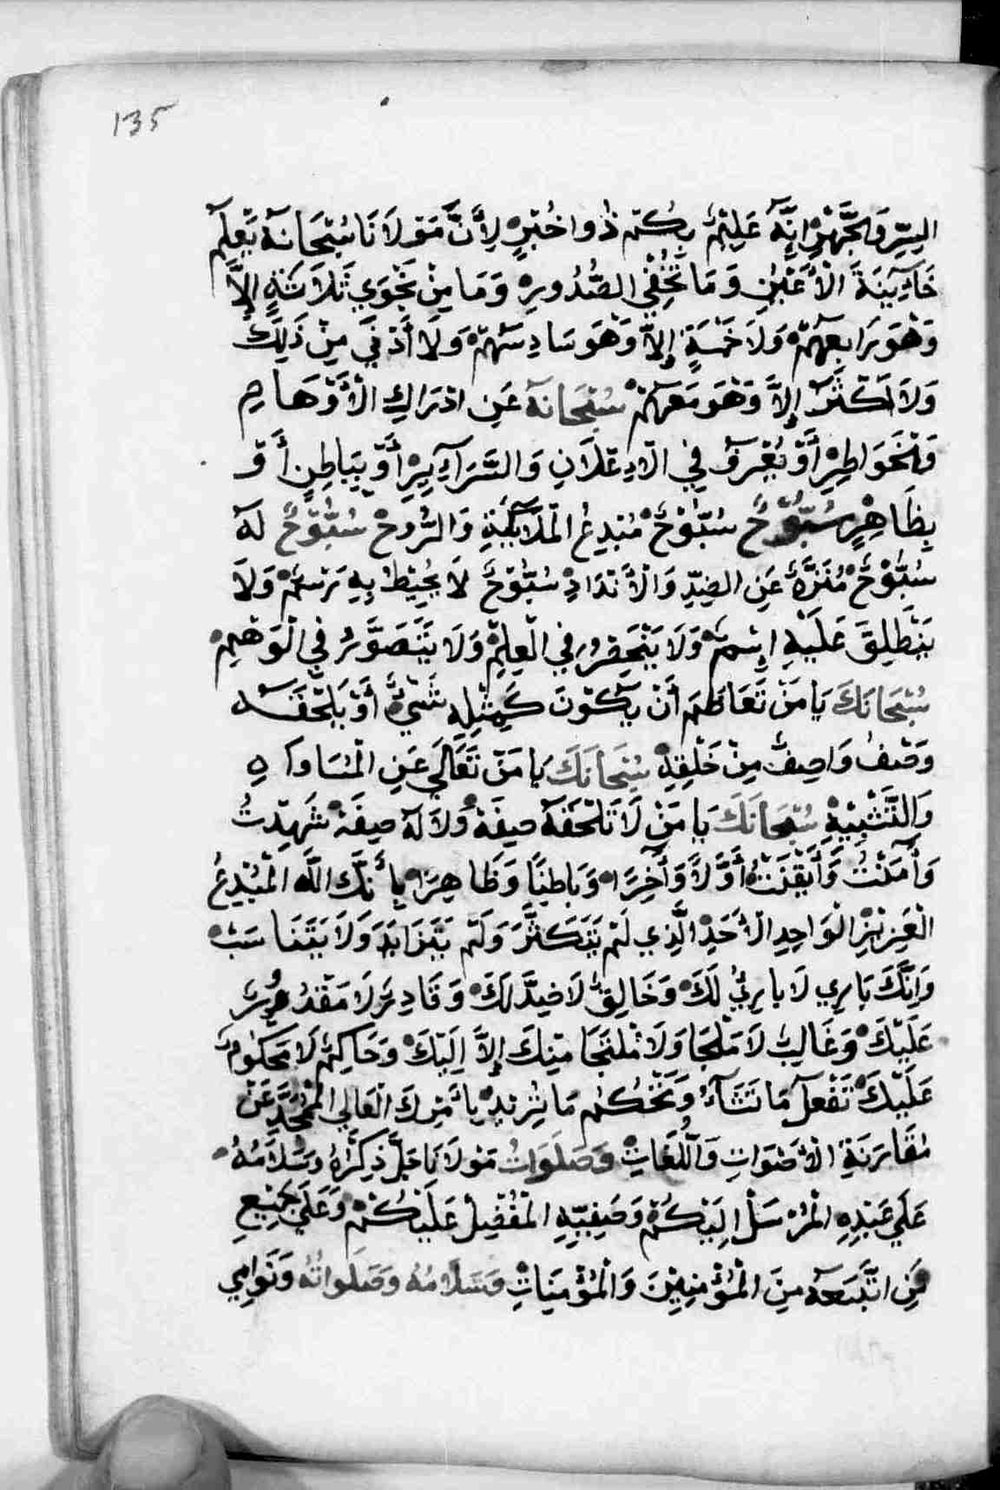 135
السِّرِّ وَالجَّهْرِ إِنَّهُ عَلِيْمٌ بِكُمْ ذُوا خُبْرٍ لِأَنَّ مَوْلَانَا سُبْحَانَهُ يَعْلَمُ
خَآئِينَةَ الْأَعْيُنِ وَمَا تُخْفِي الصُّدُورِ وَمَا مِنْ نَجْوَي ثَلَاثَةٍ إِلاَّ
وَهُوَ رَابِعُهُمْ وَلَا خَمْسَةٍ إِلاَّ وَهُوَ سَادِسُهُمْ وَلَا أَدْنَي مِنْ ذَلِكَ
وَلَا أَكْثَرَ إِلاَّ وَهُوَ مَعَهُمْ سُبْحَانَهُ عَنِ ادْرَاكِ الْأَوْهَامِ
وَالْخَوَاطِرِ أَوْ يُعْرَفُ فِي الْإِعْلَانِ وَالسَّرَآئِرِ أَوْ بِبَاطِنٍ أَوْ
بِظَاهِرٍ سُبُّوْحٌ سُبُّوْحٌ مُبْدِعُ الْمَلَآئِكَةِ وَالرُّوحُ سُبُّوْحٌ لَهُ
سُبُّوْحٌ مُنَزَّهٌ عَنِ الضِّدِّ وَالْأَنْدَادِ سُبُّوْحٌ لَا يُحِيْطُ بِهِ رَسْمٌ وَلَا
يَنْطَلِقُ عَلَيْهِ اِسْمٌ وَلَا يَنْحَصِرُ فِي الْعِلْمِ وَلَا يَتَصَوَّرُ فِي الْوَهْمِ
سُبْحَانَكَ يَا مَنْ تَعَاظَمَ أَنْ يَكُوْنَ كَمِثْلِهِ شَيْءٌ أَوْ يَلْحَقَهُ
وَصْفُ وَاصِفٍ مِنْ خَلْقِهِ سُبْحَانَكَ يَا مَنْ تَعَالَي عَنِ الْمُسَاوَاهِ
وَالتَّشْبِيْهِ سُبْحَانَكَ يَا مَنْ لَا تَلْحَقُهُ صِفَةٌ وَلَا لَهُ صِفَةٌ شَهِدْتُ
وَآمَنْتُ وَأَيْقَنْتُ أَوَّلاً وَآخِرًا وَبَاطِنًا وَظَاهِرًا بِأَنَّكَ اللَّهُ الْمُبْدِعُ
الْعَزِيْزُ الْوَاحِدِ الْأَحَدِ الَّذِي لَمْ يَتَكَثَّرَ وَلَمْ يَتَزَايَدَ وَلَا يَتَنَاسَبْ
وَاِنَّكَ بَارِي لَا بَارِيٌ لَكَ وَخَالِقٌ لَا ضِدَّ لَكَ وَقَادِرٌ لَا مَقْدُوْرٌ
عَلَيْكَ وَغَالِبٌ لَا مَلْجَا وَلَا مُلْتَجَا مِنْكَ إِلاَّ إِلَيْكَ وَحَاكِمٌ لَا مَحْكُوْمٌ
عَلَيْكَ تَفْعَلُ مَا تَشَآءُ وَتَحْكُمُ مَا تُرِيْدُ بِأَمْرِكَ الْعَالِي الْمُجَرَّدِ عَنْ
مُقَارَنَةِ الْأَصْوَاتِ وَاللُّغَاتِ وَصَلَوَاتُ مَوْلَانَا جَلَّ ذِكْرُهُ وَسَلَامُهُ
عَلَي عَبْدِهِ الْمُرْسَلِ إِلَيْكُمْ وَصَفِيِّهِ الْمُفْضِلِ عَلَيْكُمْ وَعَلَي جَمِيْعِ
مَنِ اتَّبَعَهُ مِنَ الْمُؤْمِنِيْنَ وَالْمُؤْمِنَاتِ وَسَلَامُهُ وَصَلَوَاتُهُ وَنَوَامِي